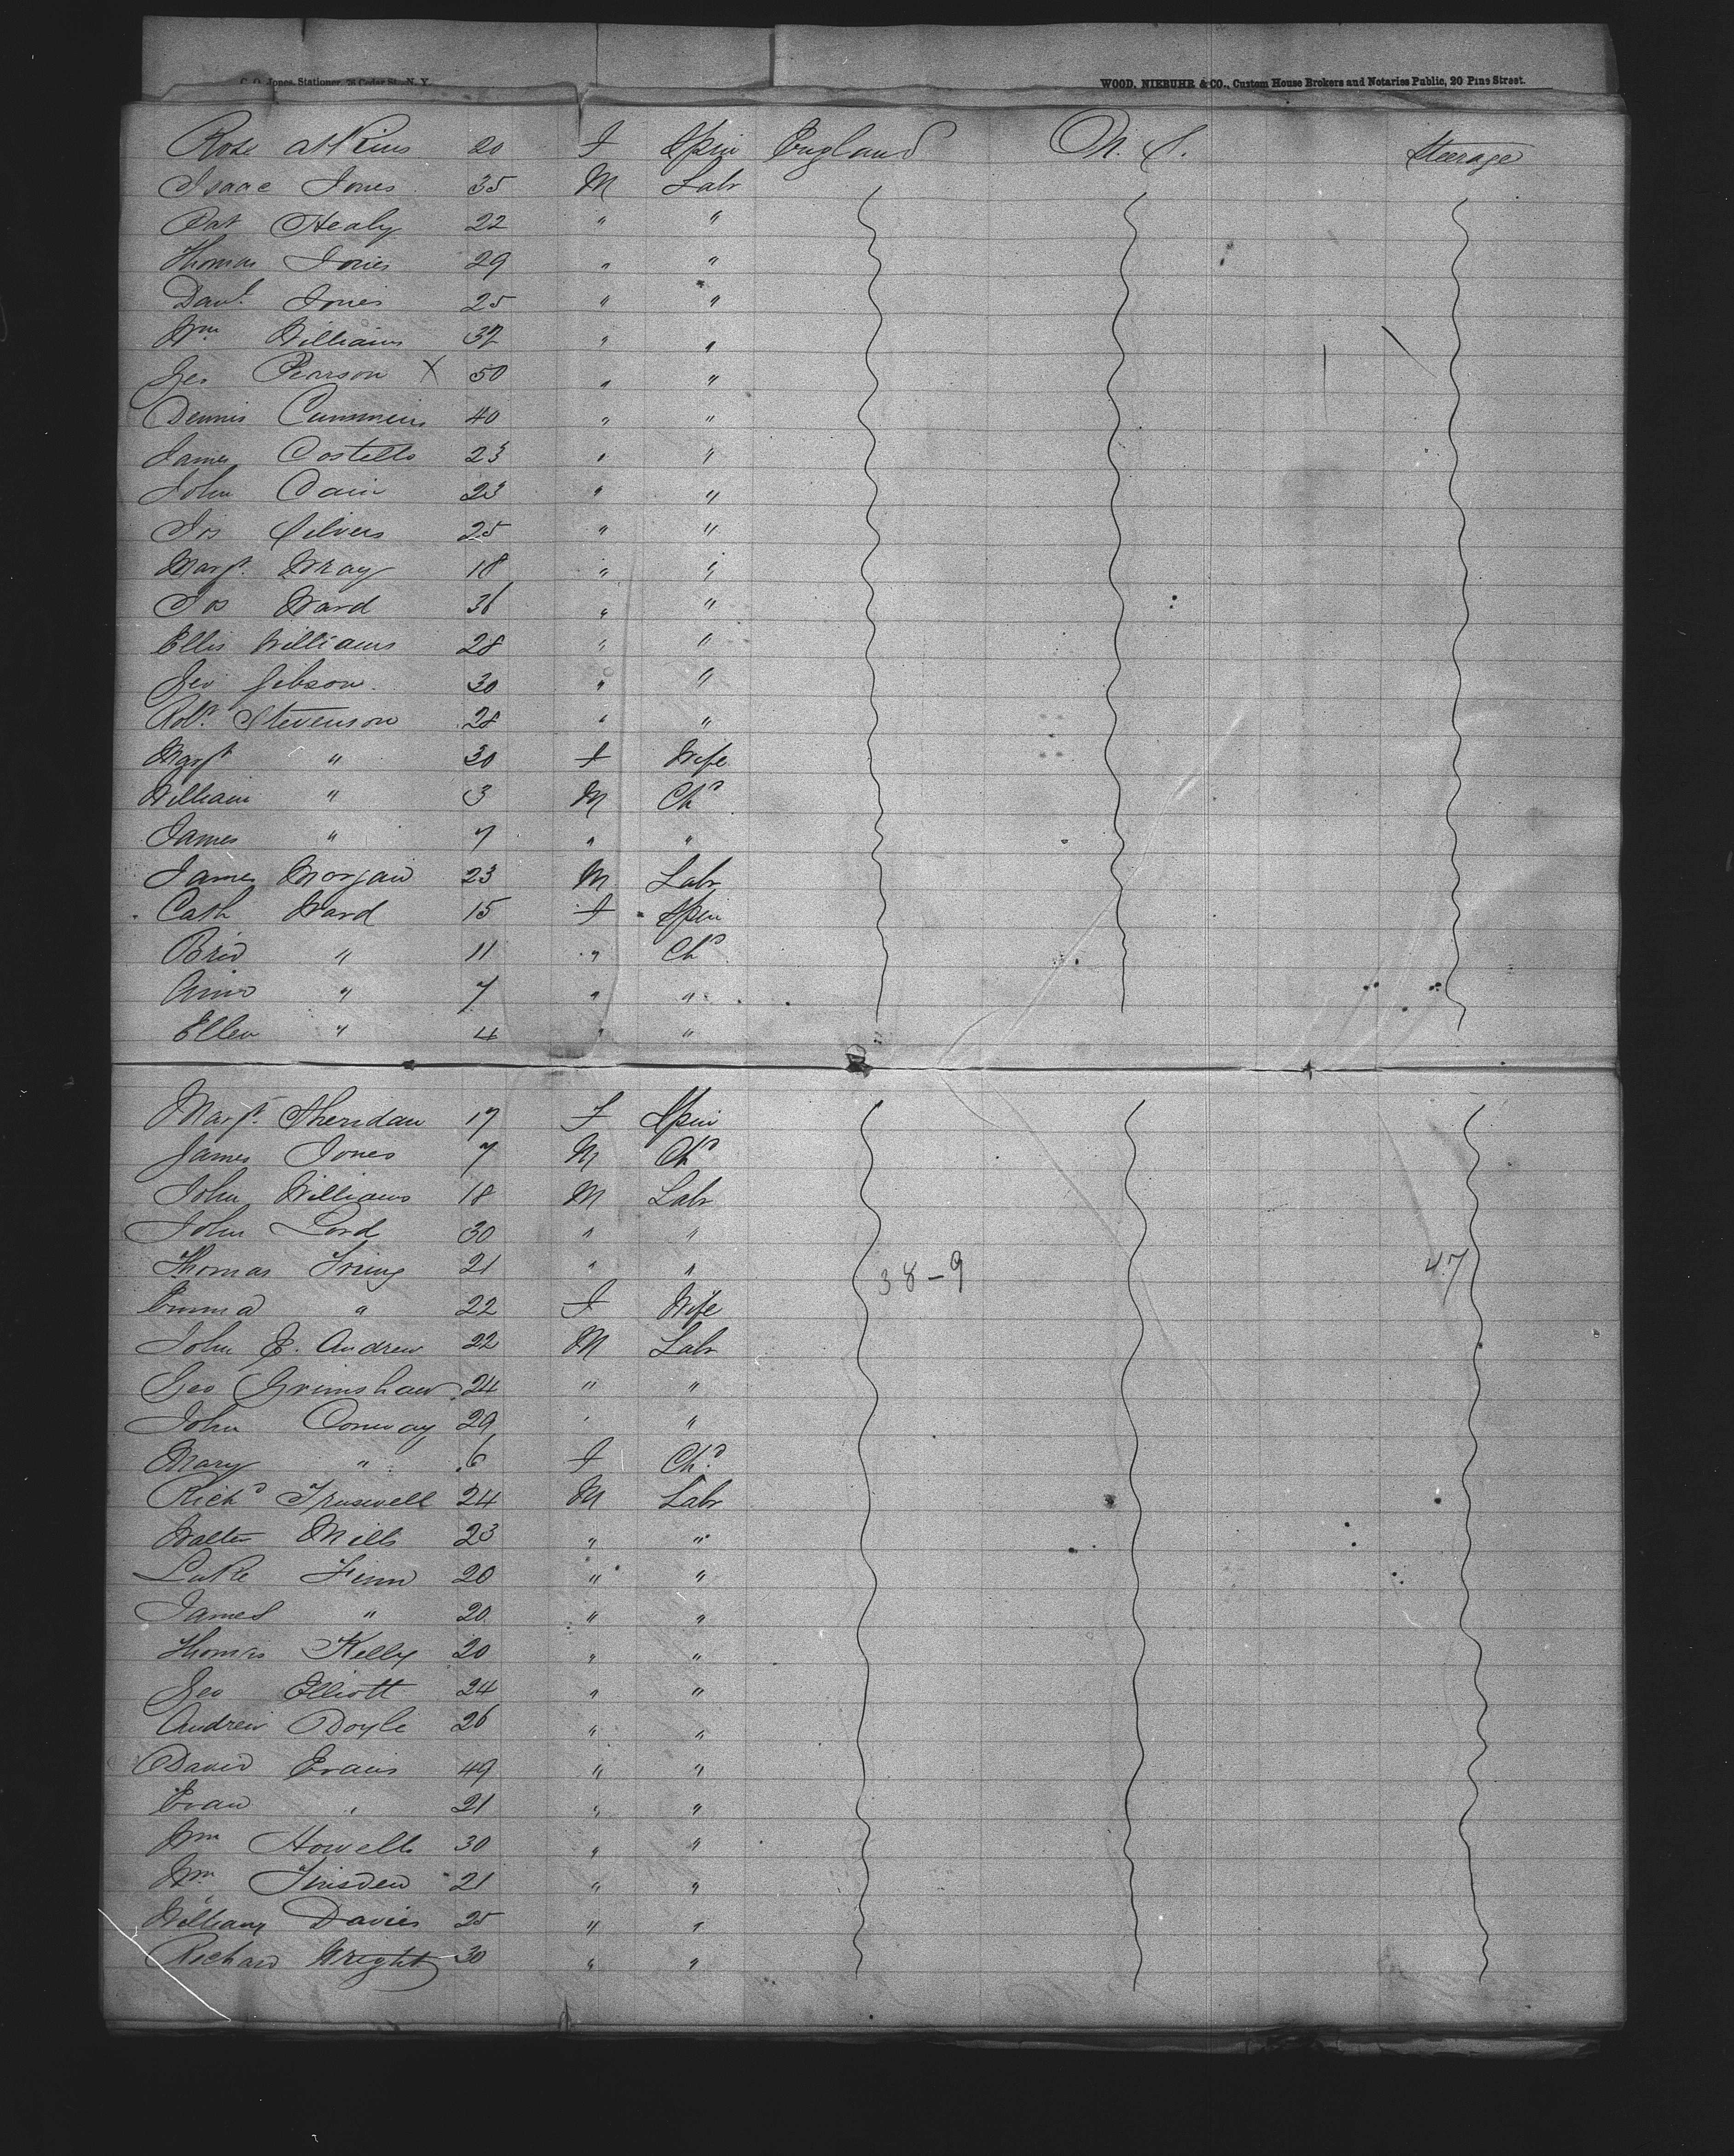 C. O. Jones, Stationer, 76 Cedar St., N. Y. WOOD, NIEBUHR & CO., Custom House Brokers and Notaries Public, 20 Pine Street.
Rose Atkins 20 F Spin England U. S. Steerage
Isaac Jones 35 M Labr
Pat Healy 22 " "
Thomas Jones 29 " "
Danl Jones 25 " "
Wm Williams 32 " "
Geo Pearson X 50 " "
Dennis Cummins 40 " "
James Costello 23 " "
John Cain 23 " "
Jos Silvers 25 " "
Margt Wray 18 " "
Jos Ward 36 " "
Ellis Williams 28 " "
Geo Gibson 30 " "
Robt Stevenson 28 " "
Margt " 30 F Wife
William " 3 M Chd
James " 7 " "
James Morgan 23 M Labr
Cath Ward 15 F Spin
Brid " 11 " Chd
Ann " 7 " "
Ellen " 4 " "
Margt Sheridan 17 F Spin
James Jones 7 M Chd
John Williams 18 M Labr
John Lord 30 " "
Thomas Irving 21 " " 38-9 47
Emma " 22 F Wife
John E. Andrew 22 M Labr
Geo Grimshaw 24 " "
John Conway 29 " "
Mary " 6 F Chd
Richd Truswell 24 M Labr
Walter Mills 23 " "
Luke Finn 20 " "
James " 20 " "
Thomas Kelly 20 " "
Geo Elliott 24 " "
Andrew Doyle 26 " "
David Evans 49 " "
Evan " 21 " "
Wm Howells 30 " "
Wm 21 " "
William Davies 25 " "
Richard Wright 30 " "